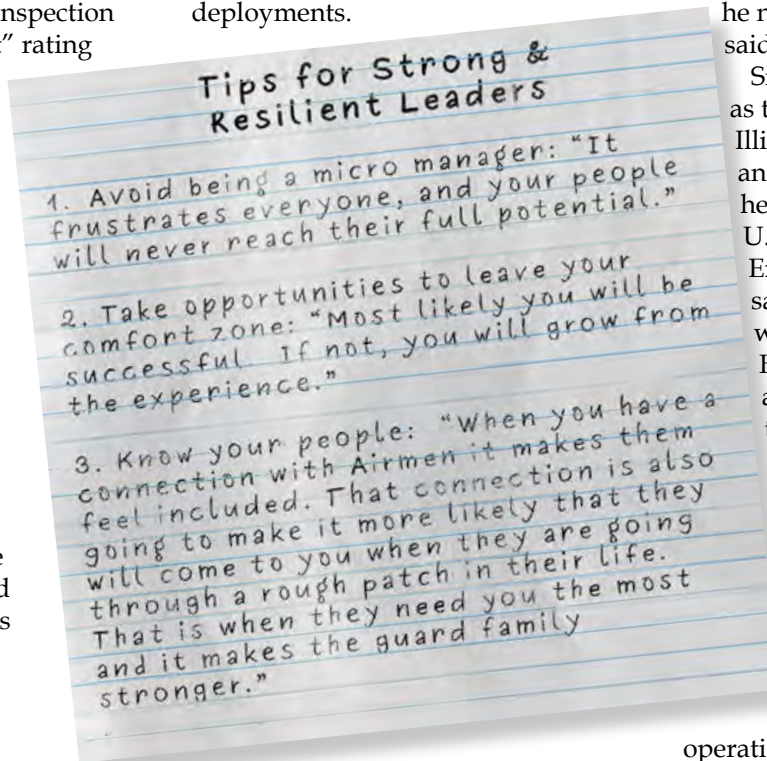 nspection
deployments.
” rating
he
said
Tips for Strong &
Resilient Leaders
as t
Illi
an
he
U.
1. Avoid being a micro manager: “It
frustrates everyone, and your people
will never reach their full potential.”
2. Take opportunities to leave your
comfort zone: “Most likely you will be
successful. If not, you will grow from
the experience.”
3. Know your people: “When you have a
connection with Airmen it makes them
feel included. That connection is also
going to make it more likely that they
will come to you when they are going
through a rough patch in their life.
That is when they need you the most
and it makes the guard family
stronger.”
e
d
s
operati